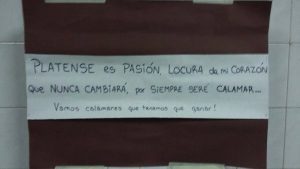 PLATENSE es PASIÓN, LOCURA de mi CORAZÓN
que NUNCA CAMBIARÁ, por SIEMPRE SERÉ CALAMAR...
Vamos calamares que tenemos que ganar!